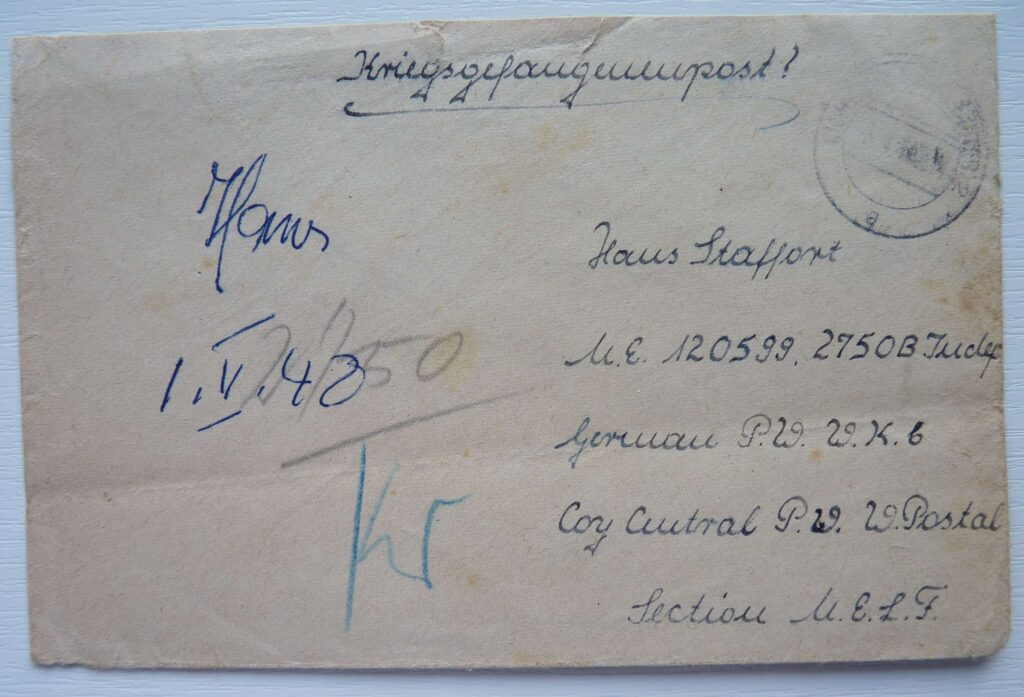 Kriegsgefangenenpost!
Hans
1.V.48
Hans Staffort
M.E. 120599, 2750B Index
German P.W. W.K. 6
Coy Central P.W. W. Postal
Section M.E.L.F.
2750
Kr
a